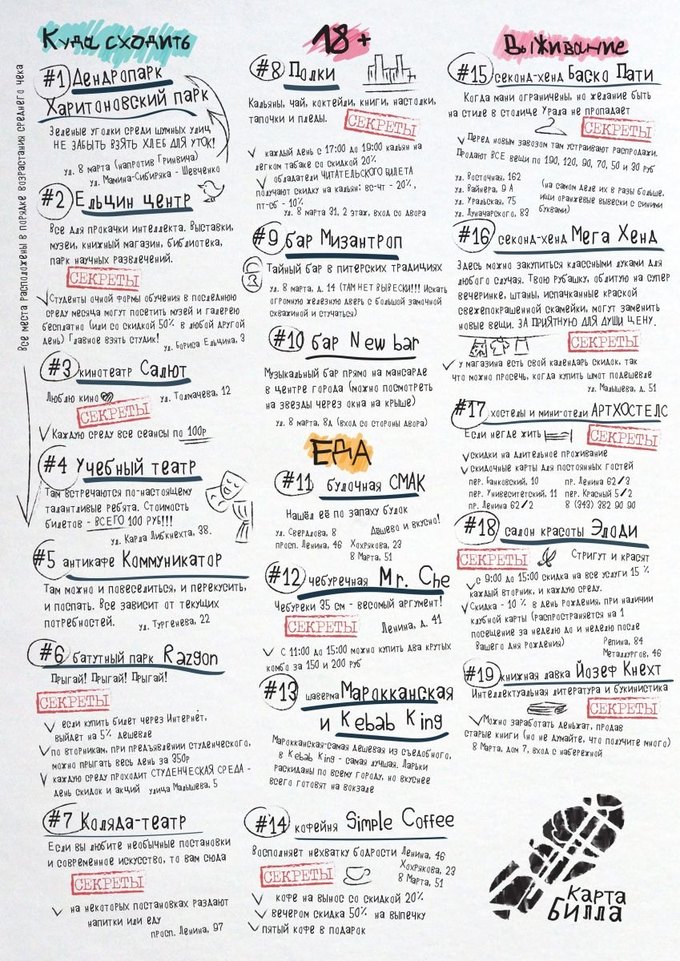 Все места расположены в порядке возрастания среднего чека
Куда сходить
#1 Дендропарк
Харитоновский парк
Зеленые уголки среди шумных улиц
НЕ ЗАБЫТЬ ВЗЯТЬ ХЛЕБ ДЛЯ УТОК!
ул. 8 марта (напротив Гринвича)
ул. Мамина-Сибиряка - Шевченко
#2 Ельцин центр
Все для прокачки интеллекта. Выставки,
музеи, книжный магазин, библиотека,
парк научных развлечений.
СЕКРЕТЫ
Студенты очной формы обучения в последнюю
среду месяца могут посетить музей и галерею
бесплатно (или со скидкой 50% в любой другой
день) Главное взять студик!
ул. Бориса Ельцина, 3
#3 кинотеатр Салют
Люблю кино
ул. Толмачева, 12
СЕКРЕТЫ
Каждую среду все сеансы по 100р
#4 Учебный театр
Там встречаются по-настоящему
талантливые ребята. Стоимость
билетов - ВСЕГО 100 РУБ!!!
ул. Карла Либкнехта, 38.
#5 антикафе Коммуникатор
Там можно и повеселиться, и перекусить,
и поспать. Все зависит от текущих
потребностей.
ул. Тургенева, 22
#6 батутный парк Razgon
Прыгай! Прыгай! Прыгай!
СЕКРЕТЫ
если купить билет через Интернет,
выйдет на 5% дешевле
по вторникам, при предъявлении студенческого,
можно прыгать весь день за 350р
каждую среду проходит СТУДЕНЧЕСКАЯ СРЕДА -
день скидок и акций улица Малышева, 5
#7 Коляда-театр
Если вы любите необычные постановки
и современное искусство, то вам сюда
СЕКРЕТЫ
на некоторых постановках раздают
напитки или еду
просп. Ленина, 97
18+
#8 Полки
Кальяны, чай, коктейли, книги, настолки,
тапочки и пледы.
СЕКРЕТЫ
каждый день с 17:00 до 19:00 кальян на
легком табаке со скидкой 20%
обладатели ЧИТАТЕЛЬСКОГО БИЛЕТА
получают скидку на кальян: вс-чт - 20%,
пт-сб - 10%
ул. 8 марта 31, 2 этаж, вход со двора
#9 бар Мизантроп
Тайный бар в питерских традициях
ул. 8 марта, д. 14 (ТАМ НЕТ ВЫВЕСКИ!!! Искать
огромную железную дверь с большой замочной
скважиной и стучаться)
#10 бар New bar
Музыкальный бар прямо на мансарде
в центре города (можно посмотреть
на звезды через окна на крыше)
ул. 8 марта, 8д (вход со стороны двора)
ЕДА
#11 булочная СМАК
Нашёл её по запаху булок
ул. Свердлова, 8
Дешево и вкусно!
просп. Ленина, 46
Хохрякова, 23
8 Марта, 51
#12 чебуречная Mr. Che
Чебуреки 35 см - весомый аргумент!
СЕКРЕТЫ
Ленина, д. 41
С 11:00 до 15:00 можно купить два крутых
комбо за 150 и 200 руб
#13 шаверма Марокканская
и Kebab King
Марокканская-самая дешевая из съедобного,
в Kebab King - самая лучшая. Ларьки
раскиданы по всему городу, но вкуснее
всего готовят на вокзале
#14 кофейня Simple Coffee
Восполняет нехватку бодрости
Ленина, 46
Хохрякова, 23
8 Марта, 51
СЕКРЕТЫ
кофе на вынос со скидкой 20%
вечером скидка 50% на выпечку
пятый кофе в подарок
Выживание
#15 секонд-хенд Баско Пати
Когда мани ограничены, но желание быть
на стиле в столице Урала не пропадает
СЕКРЕТЫ
Перед новым завозом там устраивают распродажи.
Продают ВСЕ вещи по 190, 120, 90, 70, 50 и 30 руб
ул. Восточная, 162
ул. Вайнера, 9 А
ул. Уральская, 75
ул. Луначарского, 83
(на самом деле их в разы больше.
ищи оранжевые вывески с синими
буквами)
#16 секонд-хенд Мега Хенд
Здесь можно закупиться классными луками для
любого случая. Твою рубашку, облитую на супер
вечеринке, штаны, испачканные краской
свежепокрашенной скамейки, могут заменить
новые вещи. ЗА ПРИЯТНУЮ ДЛЯ ДУШИ ЦЕНУ.
СЕКРЕТЫ
у магазина есть свой календарь скидок, так
что можно просечь, когда купить шмот подешевле
ул. Малышева, д. 51
#17 хостелы и мини-отели АРТХОСТЕЛС
Если негде жить
СЕКРЕТЫ
скидки на длительное проживание
скидочные карты для постоянных гостей
пер. Банковский, 10
пр. Ленина 62/3
пер. Университетский, 11
пер. Красный 5/2
пр. Ленина 62/2
8 (343) 382 90 90
#18 салон красоты Элоди
СЕКРЕТЫ
Стригут и красят
с 9:00 до 15:00 скидка на все услуги 15 %
каждый вторник, и каждую среду.
Скидка - 10 % в день рождения, при наличии
клубной карты (распространяется на 1
посещение за неделю до и неделю после
Вашего дня рождения)
Репина, 84
Металлургов, 46
#19 книжная лавка Йозеф Кнехт
Интеллектуальная литература и букинистика
СЕКРЕТЫ
Можно заработать деньжат, продав
старые книги (но не думайте, что получите много)
8 Марта, дом 7, вход с набережной
КАРТА
БИЛЛА